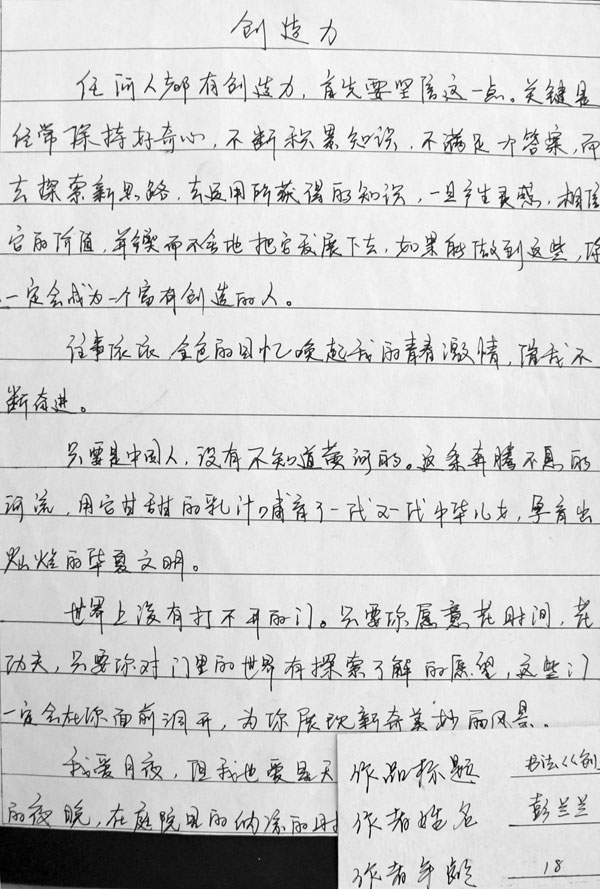 创造力
任何人都有创造力，首先要坚信这一点。关键是
经常保持好奇心，不断积累知识，不满足个答案，而
去探索新思路，去运用所获得的知识，一旦产生灵感，相信
它的价值，并锲而不舍地把它发展下去，如果能做到这些，你
一定会成为一个富有创造的人。
往事依依，金色的回忆唤起我的青春激情，催我不
断奋进。
只要是中国人，没有不知道黄河的。这条奔腾不息的
河流，用它甘甜的乳汁哺育了一代又一代中华儿女，孕育出
灿烂的华夏文明。
世界上没有打不开的门。只要你愿意花时间，花
功夫，只要你对门里的世界有探索了解的愿望，这些门
一定会在你面前洞开，为你展现新奇美妙的风景。
我爱月夜，但我也爱星天
的夜晚，在庭院里的纳凉的时
作品标题 书法<<创
作者姓名 彭兰兰
作者年龄 18